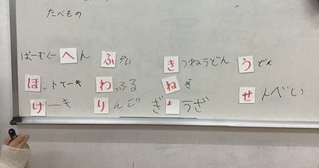 たべもの
ばーむくーへん ふ きつねうどん うどん
ほっとケーキ わっふる ねぎ
けーき りんご ぎょうざ せんべい